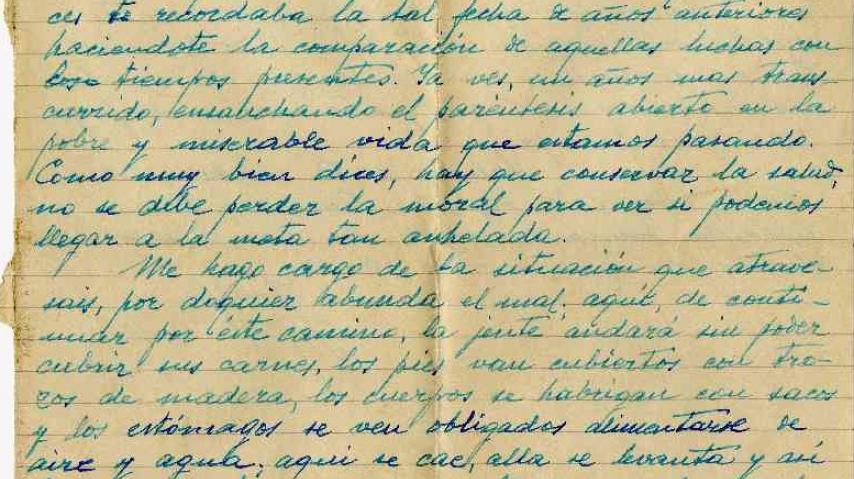 ces te recordaba la tal fecha de años anteriores
haciendote la comparación de aquellas luchas con
los tiempos presentes. Ya ves, un años mas trans-
currido, ensanchando el paréntesis abierto en la
pobre y miserable vida que estamos pasando.
Como muy bien dices, hay que conservar la salud,
no se debe perder la moral para ver si podemos
llegar a la meta tan anhelada.
Me hago cargo de la situación que atrave-
sais, por doquier abunda el mal; aquí, de conti-
nuar por éste camino, la jente andará sin poder
cubrir sus carnes, los pies van cubiertos con tro-
zos de madera, los cuerpos se habrigan con sacos
y los estómagos se ven obligados alimentarse de
aire y agua; aqui se cae, alla se levanta y asi